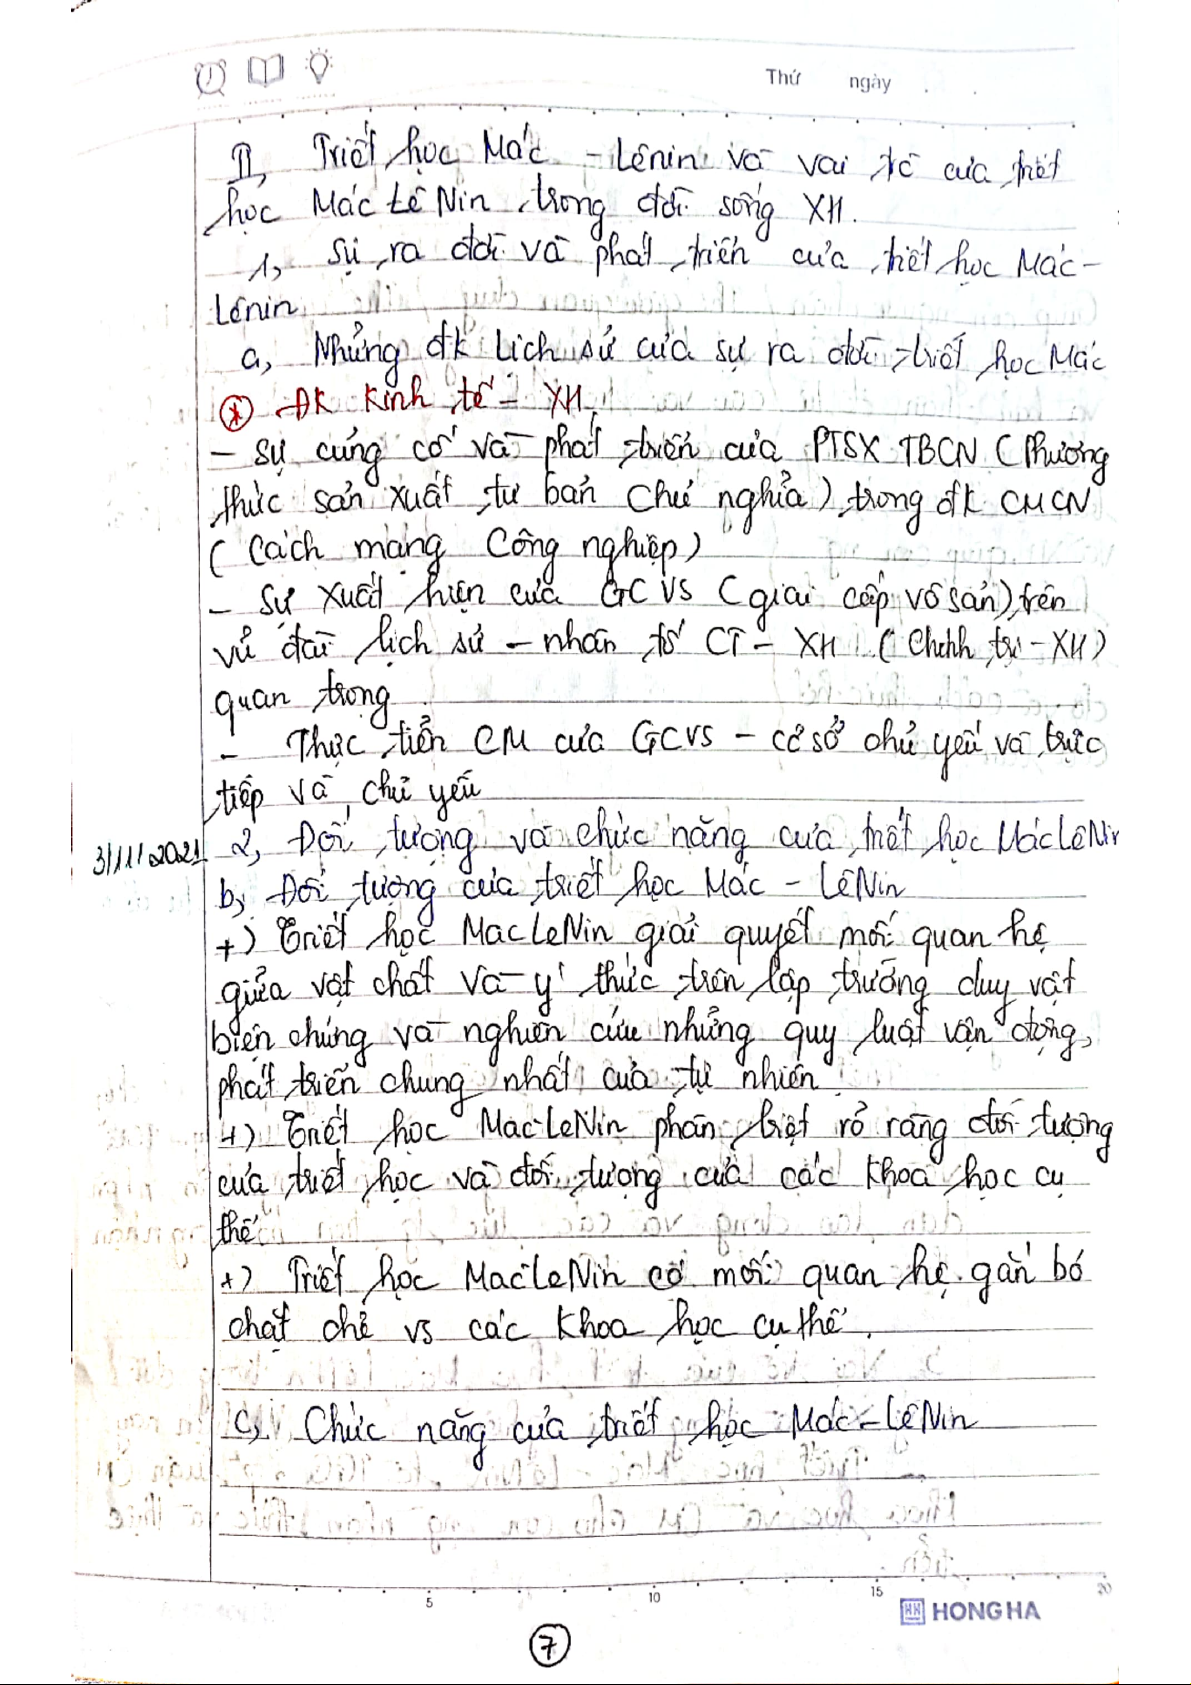 Thứ ngày
II, Triết học Mác - Lênin và vai trò của triết
học Mác Lê Nin trong đời sống XH.
1, Sự ra đời và phát triển của triết học Mác -
Lênin
a, Những đk lịch sử của sự ra đời triết học Mác
(*) ĐK Kinh tế - XH.
- Sự củng cố và phát triển của PTSX TBCN (Phương
thức sản xuất tư bản chủ nghĩa) trong đk CMCN
(Cách mạng Công nghiệp)
- Sự xuất hiện của GCVS (giai cấp vô sản) trên
vũ đài lịch sử - nhân tố CT - XH (Chính trị - XH)
quan trọng
- Thực tiễn CM của GCVS - cơ sở chủ yếu và trực
tiếp và chủ yếu
3/11/2021 2, Đối tượng và chức năng của triết học Mác Lê Nin
b, Đối tượng của triết học Mác - Lê Nin
+) Triết học Mac LeNin giải quyết mối quan hệ
giữa vật chất và ý thức trên lập trường duy vật
biện chứng và nghiên cứu những quy luật vận động,
phát triển chung nhất của tự nhiên
+) Triết học Mac-LeNin phân biệt rõ ràng đối tượng
của triết học và đối tượng của các khoa học cụ
thể
+) Triết học Mac-LeNin có mối quan hệ gắn bó
chặt chẽ vs các khoa học cụ thể.
c, Chức năng của triết học Mác - Lê Nin
5 10 15 20
HH HONG HA
7